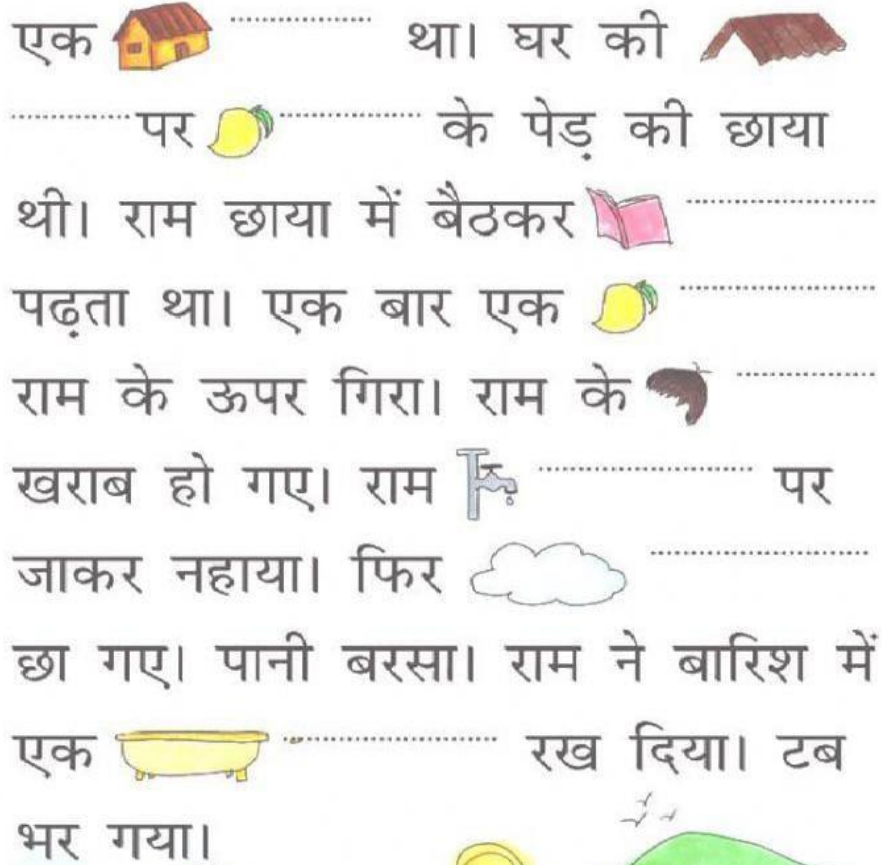 एक ................ था। घर की
............. पर ............... के पेड़ की छाया
थी। राम छाया में बैठकर ....................
पढ़ता था। एक बार एक ....................
राम के ऊपर गिरा। राम के ..............
खराब हो गए। राम ...................... पर
जाकर नहाया। फिर ......................
छा गए। पानी बरसा। राम ने बारिश में
एक ...................... रख दिया। टब
भर गया।